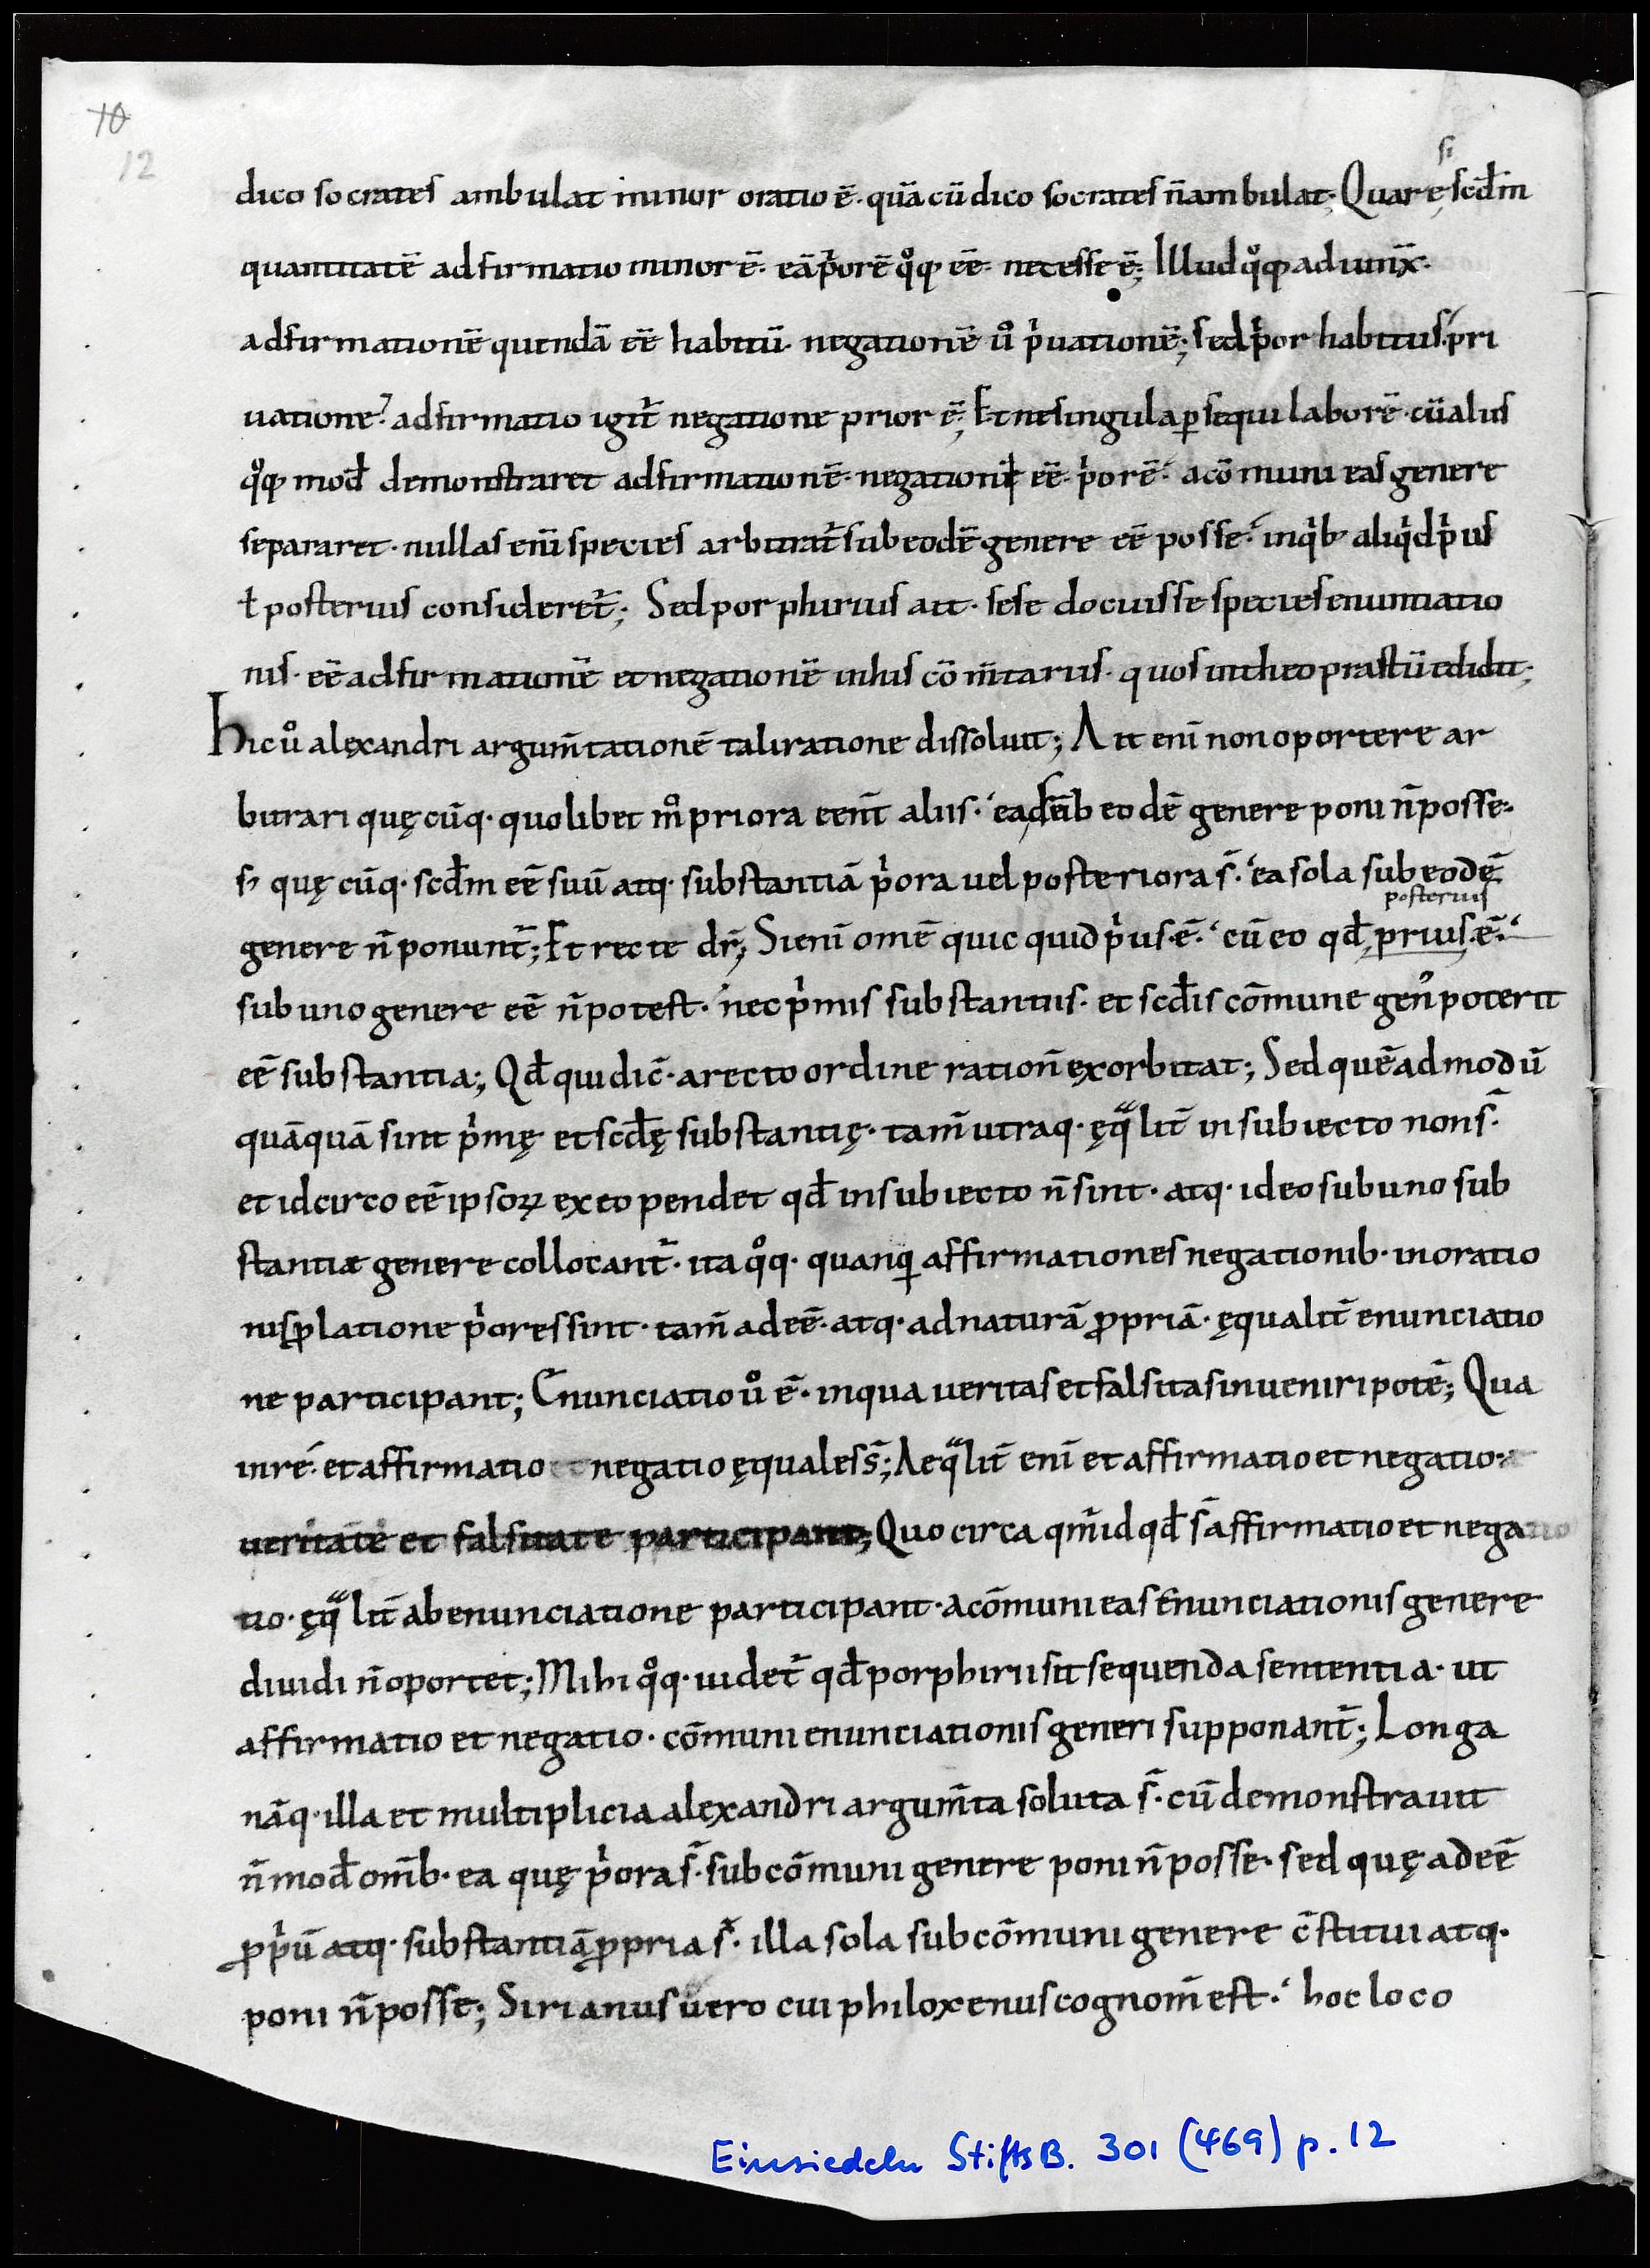 10
12
si
dico socrates ambulat minor oratio ē· quā cū dico socrates n̄ ambulat; Quare scd̄m
quantitatē adfirmatio minor ē· eā p̄orē qͦq; eē· necesse ē; Illud qͦq; adiun̄x·
adfirmationē quendā eē habitū· negationē uͦ p̍uationē; sed p̍or habitus· pri
uatione· adfirmatio igit̄ negatione prior ē; Et ne singula ꝑsequi laborē· cū aliis
qͦq; mod̄ demonstraret adfirmationē· negationi eē· p̍orē· a cōmuni eas genere
separaret· nullas enī species arbitrat̄ sub eodē genere eē posse· in qͥb; aliqͥd p̍us
ł posterius consideret̄; Sed porphirius ait· sese docuisse species enuntiatio
nis· eē adfirmationē et negationē in his cōm̄tariis· quos in theoprastū edidit;
Hic uͦ alęxandri argum̄tationē tali ratione dissoluit; Ait enī non oportere ar
bitrari quęcūq;· quolibet mͦ priora eēnt aliis· ea sub eodē genere poni n̄ posse·
s; quęcūq;· scd̄m eē suū atq;· substantiā p̍ora uel posteriora s̄· ea sola sub eodē
posterius
genere n̄ ponunt̄; Et recte dr̄; Si enī omē quicquid p̍us· ē· cū eo qd̄ prius· ē·
sub uno genere eē n̄ potest· nec p̍mis substantiis· et scd̄is cōmune gen᷒ poterit
eē substantia; Qd̄ qui dic̄· a recto ordine ration̄ ęxorbitat; Sed quēadmodū
quāquā sint p̍mę et scd̄ę substantię· tam̄ utraq;· ęqͣlit̄ in subiecto non s̄·
et idcirco eē ipsoꝝ ex eo pendet qd̄ in subiecto n̄ sint· atq;· ideo sub uno sub
stantiæ genere collocant̄· ita qͦq;· quanqͣ affirmationes negationib;· in oratio
nis ꝓlatione p̍ores sint· tam̄ ad eē· atq;· ad naturā ꝓpriā· ęqualit̄ enunciatio
ne participant; Enunciatio uͦ ē· in qua ueritas et falsitas inueniri potē; Qua
in rē· et affirmatio et negatio ęquales s̄; Aeqͣlit̄ enī et affirmatio et negatio·
ueritate et falsitate participant; Quo circa qm̄ id qd̄ s̄ affirmatio et nega
tio· ęqͣlit̄ ab enunciatione participant· a cōmuni eas enunciationis genere
diuidi n̄ oportet; Mihi qͦq;· uidet̄ qd̄ porphirii sit sequenda sententia· ut
affirmatio et negatio· cōmuni enunciationis generi supponant̄; Longa
nāq;· illa et multiplicia alęxandri argum̄ta soluta s̄· cū demonstrauit
n̄ mod̄ om̄ib;· ea quę p̍ora s̄· sub cōmuni genere poni n̄ posse· sed quę ad eē
ꝓp̍ū atq;· substantiā ꝓpria s̄· illa sola sub cōmuni genere c̄stitui atq;·
poni n̄ posse; Sirianus uero cui philoxenus cognom̄ est· hoc loco
Einsiedeln StiftsB. 301 (469) p. 12